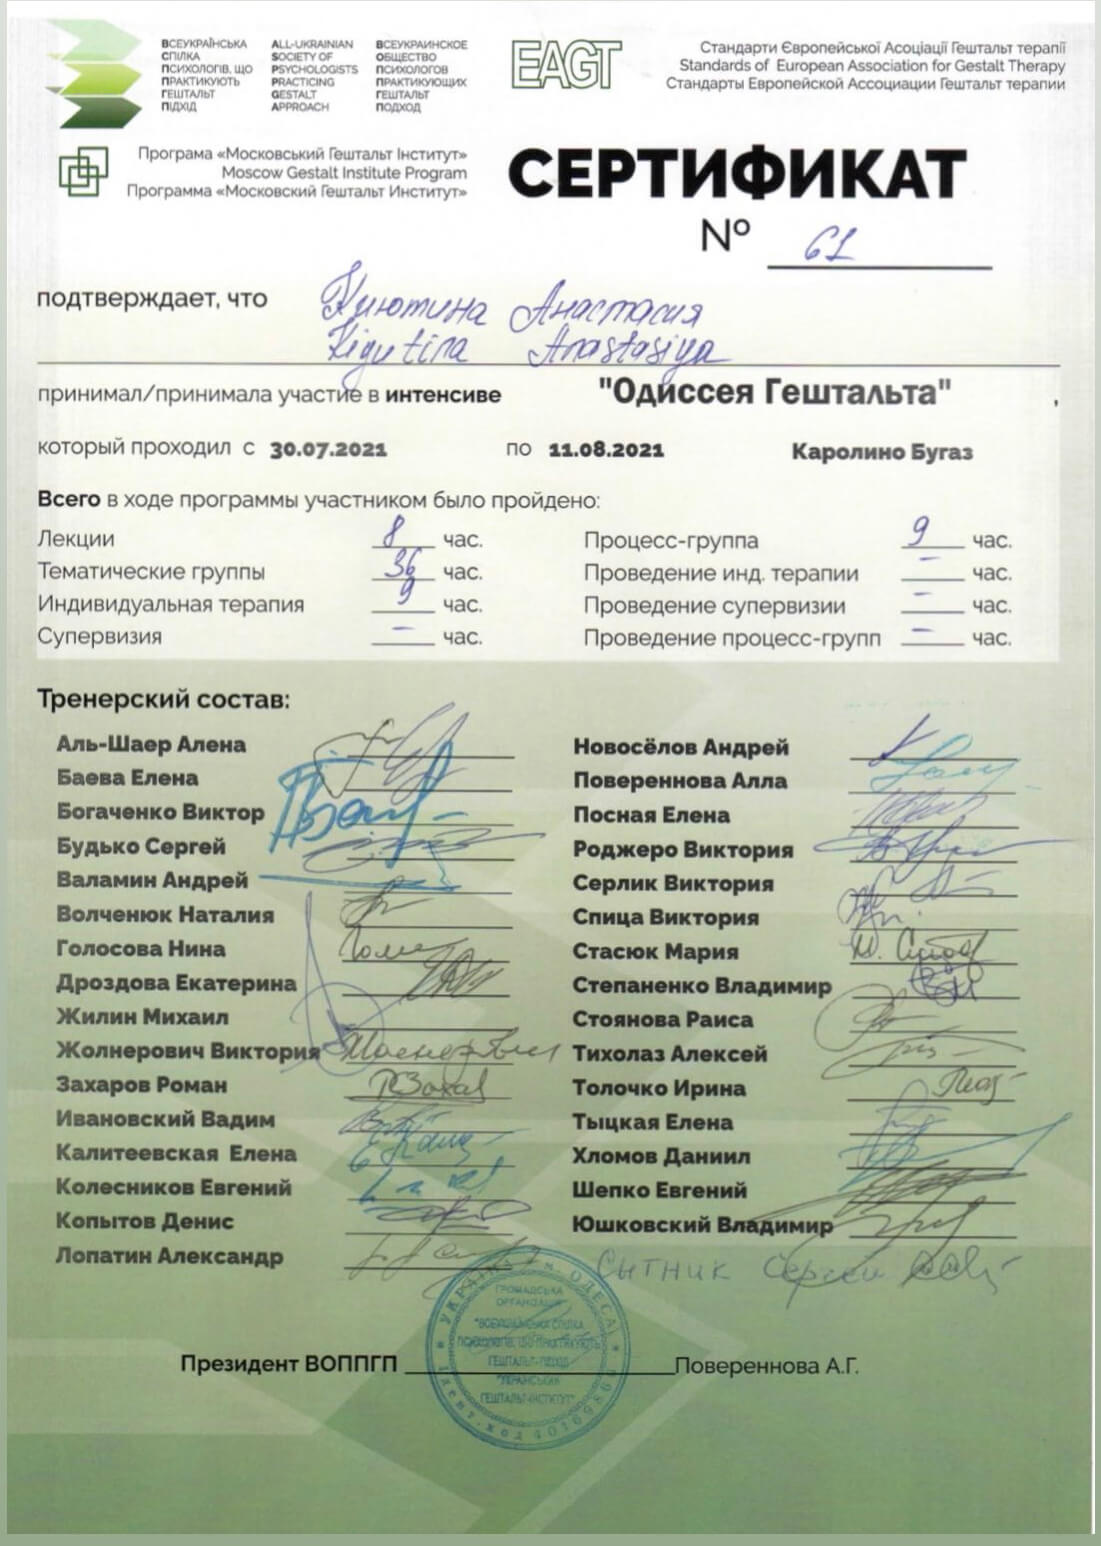 ВСЕУКРАЇНСЬКА СПІЛКА ПСИХОЛОГІВ, ЩО ПРАКТИКУЮТЬ ГЕШТАЛЬТ ПІДХІД
ALL-UKRAINIAN SOCIETY OF PSYCHOLOGISTS PRACTICING GESTALT APPROACH
ВСЕУКРАИНСКОЕ ОБЩЕСТВО ПСИХОЛОГОВ ПРАКТИКУЮЩИХ ГЕШТАЛЬТ ПОДХОД
EAGT
Стандарти Європейської Асоціації Гештальт терапії
Standards of European Association for Gestalt Therapy
Стандарты Европейской Ассоциации Гештальт терапии
Програма «Московський Гештальт Інститут»
Moscow Gestalt Institute Program
Программа «Московский Гештальт Институт»
СЕРТИФИКАТ
№ 61
подтверждает, что Киютина Анастасия
Kiyutina Anastasiya
принимал/принимала участие в интенсиве "Одиссея Гештальта",
который проходил с 30.07.2021 по 11.08.2021 Каролино Бугаз
Всего в ходе программы участником было пройдено:
Лекции 8 час. Процесс-группа 9 час.
Тематические группы 36 час. Проведение инд. терапии – час.
Индивидуальная терапия 9 час. Проведение супервизии – час.
Супервизия – час. Проведение процесс-групп – час.
Тренерский состав:
Аль-Шаер Алена
Баева Елена
Богаченко Виктор
Будько Сергей
Валамин Андрей
Волченюк Наталия
Голосова Нина
Дроздова Екатерина
Жилин Михаил
Жолнерович Виктория
Захаров Роман
Ивановский Вадим
Калитеевская Елена
Колесников Евгений
Копытов Денис
Лопатин Александр
Новосёлов Андрей
Повереннова Алла
Посная Елена
Роджеро Виктория
Серлик Виктория
Спица Виктория
Стасюк Мария
Степаненко Владимир
Стоянова Раиса
Тихолаз Алексей
Толочко Ирина
Тыцкая Елена
Хломов Даниил
Шепко Евгений
Юшковский Владимир
Сытник Сергей
Президент ВОППГП Повереннова А.Г.
УКРАЇНА м. ОДЕСА
ГРОМАДСЬКА
ОРГАНІЗАЦІЯ
ПСИХОЛОГІВ, ЩО ПРАКТИКУЮТЬ
ГЕШТАЛЬТ-ПІДХІД
ГЕШТАЛЬТ-ІНСТИТУТ"